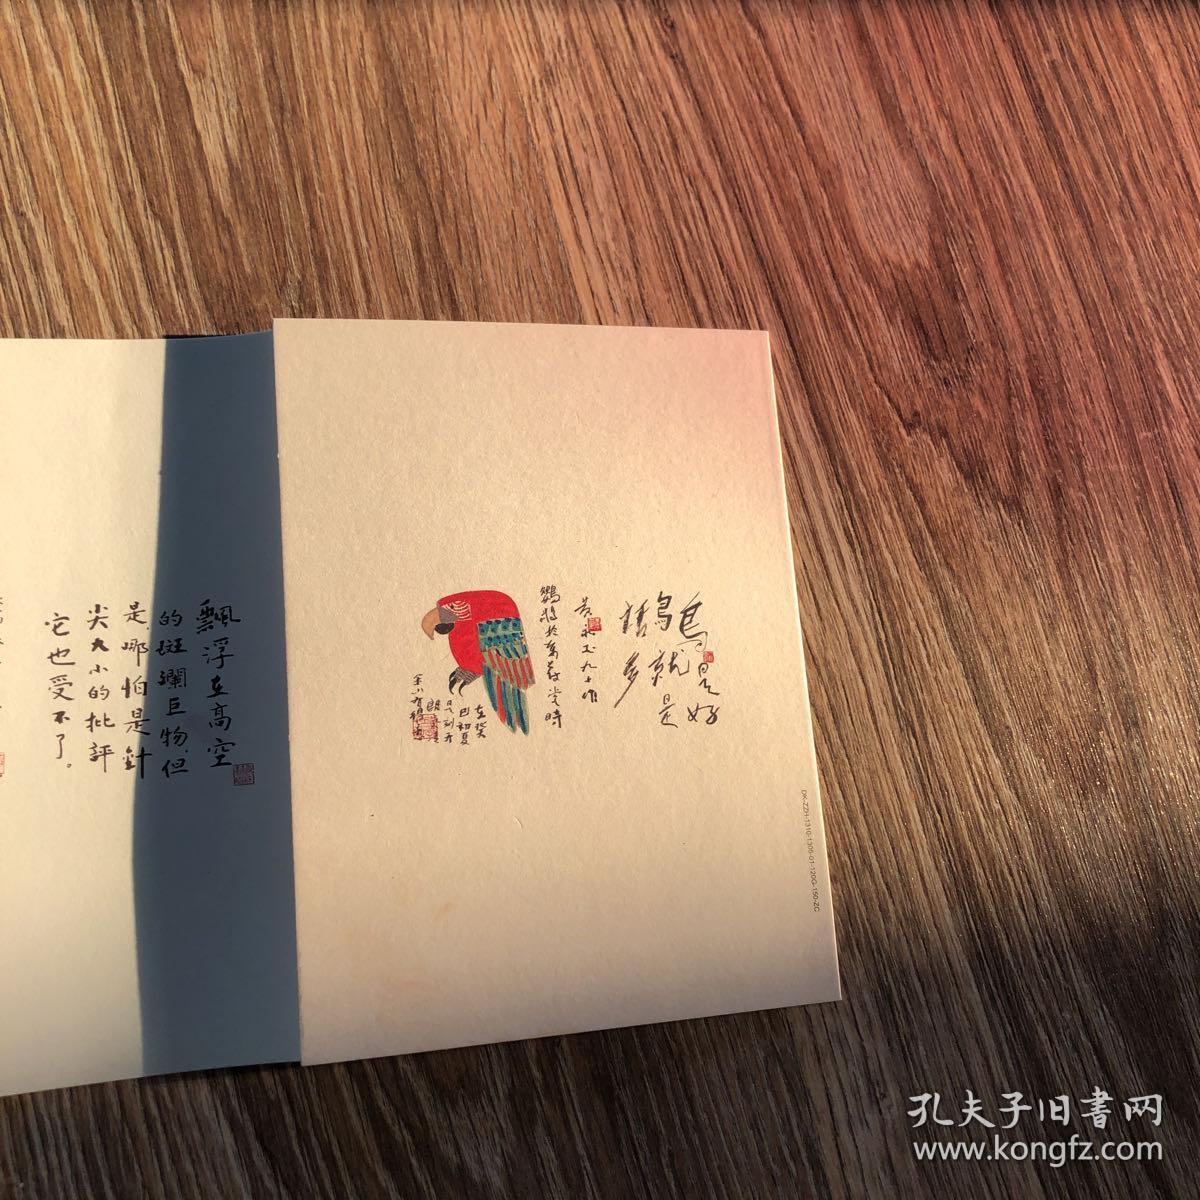 飄浮在高空
的斑斕巨物,但
是哪怕是針
尖大小的批評
它也受不了。
鳥是好
鳥就是
話多
黃永玉九十作
鸚鵡於萬荷堂時
在癸
巳初夏
DK-ZZH-1310-1305-01-120G-150-ZC
孔夫子旧書网
www.kongfz.com